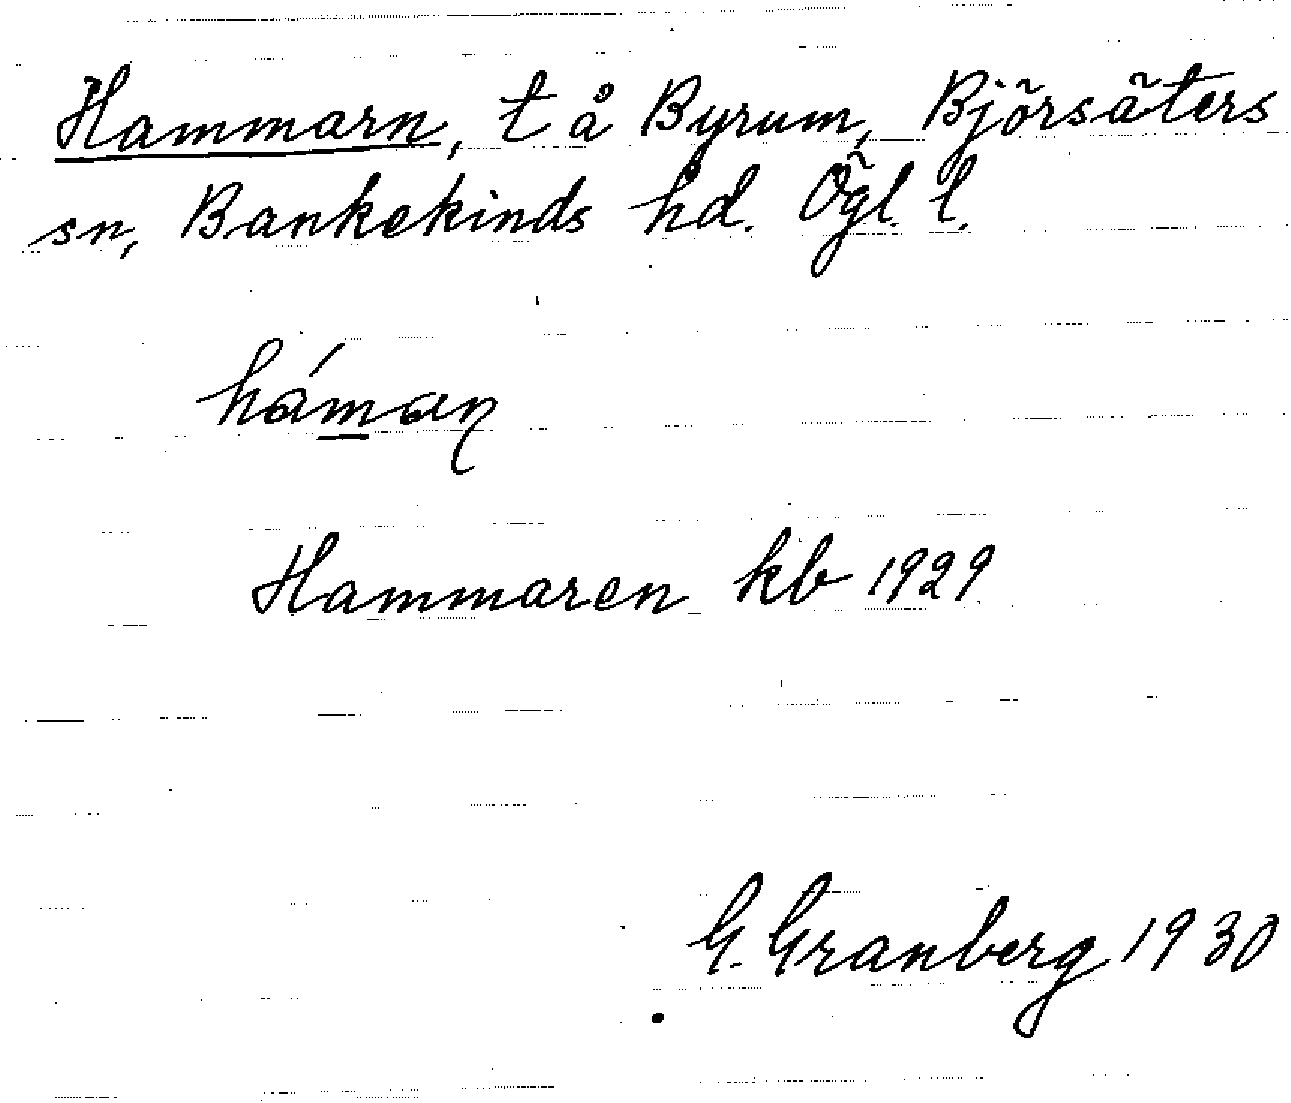 Hammarn, t å Byrum, Björsäters
sn, Bankekinds hd. Ögl. l.
háman
Hammaren kb 1929
G. Granberg 1930